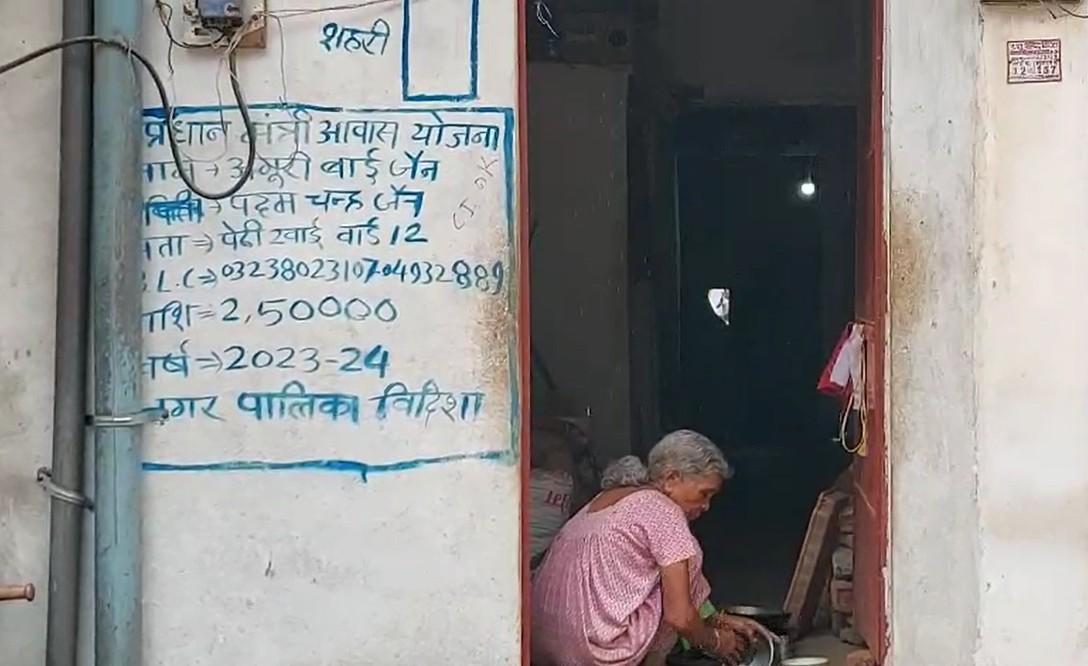 शहरी
प्रधान मंत्री आवास योजना
नाम → अंगूरी बाई जैन
→ पदम चन्द्र जैन
पता ⇒ पेढी खाई वार्ड 12
B.L.C ⇒ 0323802310704932889
राशि = 2,50000
वर्ष ⇒ 2023-24
नगर पालिका विदिशा
12 137